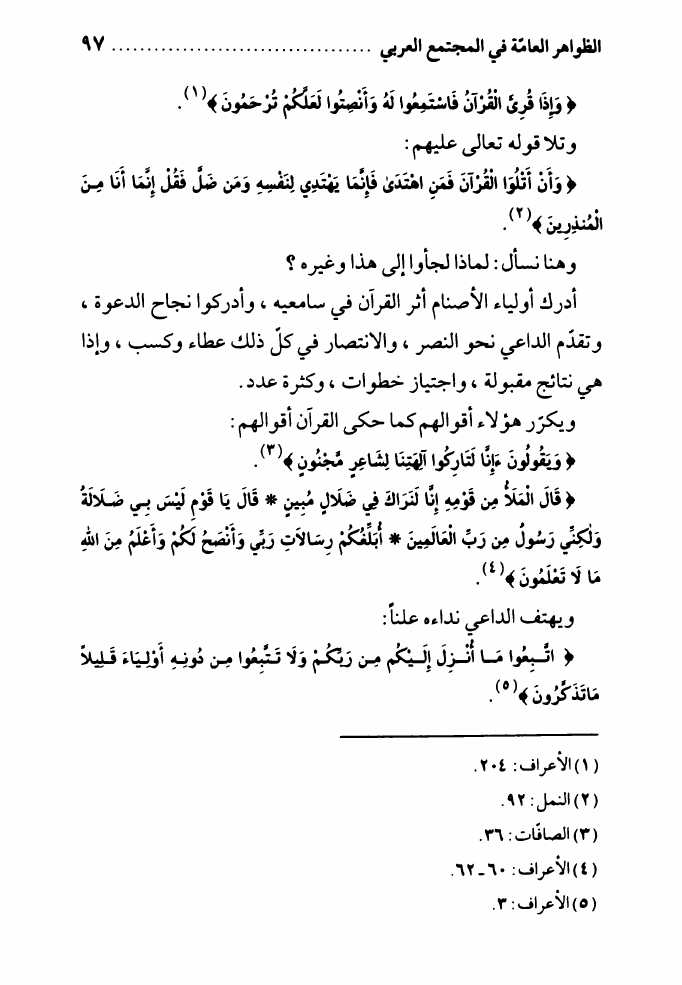 الظواهر العامّة في المجتمع العربي ..................................... ٩٧
﴿ وَإِذَا قُرِئَ الْقُرْآنُ فَاسْتَمِعُوا لَهُ وَأَنْصِتُوا لَعَلَّكُمْ تُرْحَمُونَ ﴾(١).
وتلا قوله تعالى عليهم:
﴿ وَأَنْ أَتْلُوَا الْقُرْآنَ فَمَنِ اهْتَدَىٰ فَإِنَّمَا يَهْتَدِي لِنَفْسِهِ وَمَن ضَلَّ فَقُلْ إِنَّمَا أَنَا مِنَ
الْمُنذِرِينَ ﴾(٢).
وهنا نسأل: لماذا لجأوا إلى هذا وغيره ؟
أدرك أولياء الأصنام أثر القرآن في سامعيه ، وأدركوا نجاح الدعوة ،
وتقدّم الداعي نحو النصر ، والانتصار في كلّ ذلك عطاء وكسب ، وإذا
هي نتائج مقبولة ، واجتياز خطوات ، وكثرة عدد.
ويكرّر هؤلاء أقوالهم كما حكى القرآن أقوالهم:
﴿ وَيَقُولُونَ ءَإِنَّا لَتَارِكُوا آلِهَتِنَا لِشَاعِرٍ مَّجْنُونٍ ﴾(٣).
﴿ قَالَ الْمَلَأُ مِن قَوْمِهِ إِنَّا لَنَرَاكَ فِي ضَلَالٍ مُبِينٍ * قَالَ يَا قَوْمِ لَيْسَ بِي ضَلَالَةٌ
وَلٰكِنِّي رَسُولٌ مِن رَبِّ الْعَالَمِينَ * أُبَلِّغُكُمْ رِسَالَاتِ رَبِّي وَأَنْصَحُ لَكُمْ وَأَعْلَمُ مِنَ اللهِ
مَا لَا تَعْلَمُونَ ﴾(٤).
ويهتف الداعي نداءه علناً:
﴿ اتَّبِعُوا مَا أُنْزِلَ إِلَيْكُم مِن رَبِّكُمْ وَلَا تَتَّبِعُوا مِن دُونِهِ أَوْلِيَاءَ قَلِيلاً
مَاتَذَكَّرُونَ ﴾(٥).
(١) الأعراف: ٢٠٤.
(٢) النمل: ٩٢.
(٣) الصافّات: ٣٦.
(٤) الأعراف: ٦٠ـ٦٢.
(٥) الأعراف: ٣.